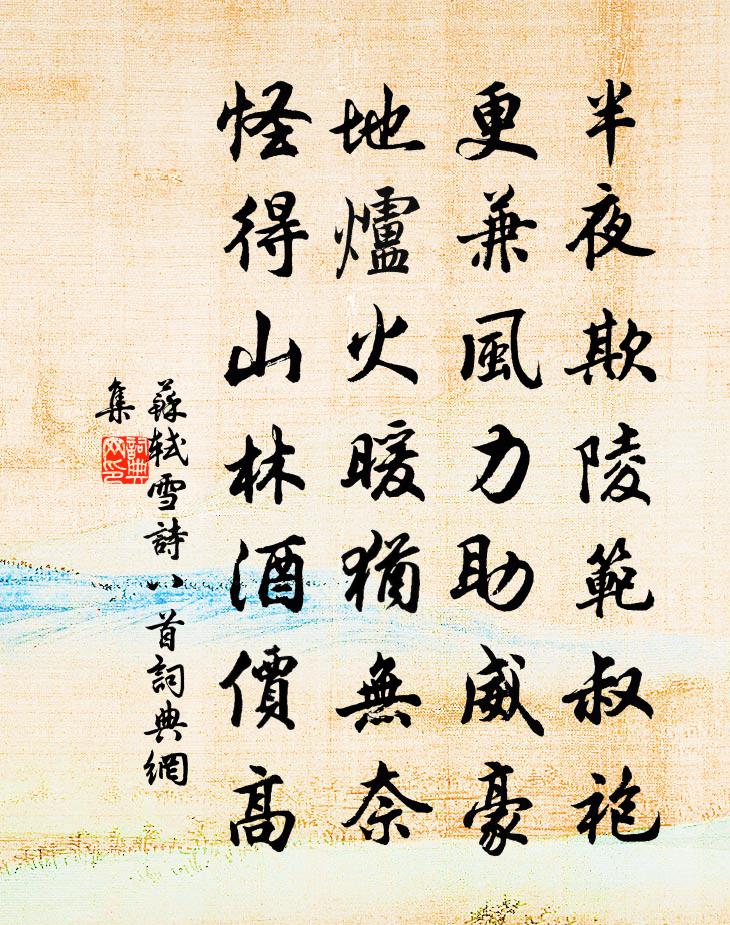 半夜欺陵範叔袍
更兼風力助威豪
地爐火暖猶無奈
怪得山林酒價高
蘇軾雪詩八首詞典網
集
詞典
网印